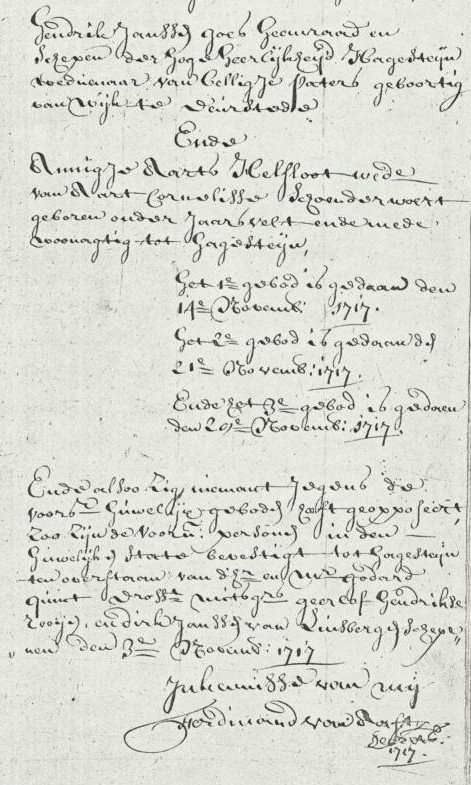 Hendrik Janssen goes heemraad en
Schepen der hoge heerlijkheijd Hagesteijn
weduenaar van Belligje Paters geboortig
van wijk te deurstede
Ende
Annigje Aarts Helsloot wede
van Aart Cornelisse Schoenderwoert
geboren onder Jaarsvelt ende mede
woonagtig tot hagesteijn,
het 1e gebod is gedaan den
14e Novemb: 1717.
het 2e gebod is gedaan den
21e Novemb: 1717.
Ende het 3e gebod is gedaen
den 29e Novemb: 1717.
Ende alsoo zig niemant Jegens de
voorsz huwelijx geboden heeft geopposeert
zoo zijn de voorn: persones in den
huwelijken state bevestigt tot hagesteijn
ten overstaan van dhr en Mr godard
quint drosst mitsgrs geerlof hendrikse
rooijen, en dirk Janssen van Linsbergen schepe
nen den 3e Novemb: 1717
In kennisse van mij
Ferdinand van
secret:
1717.